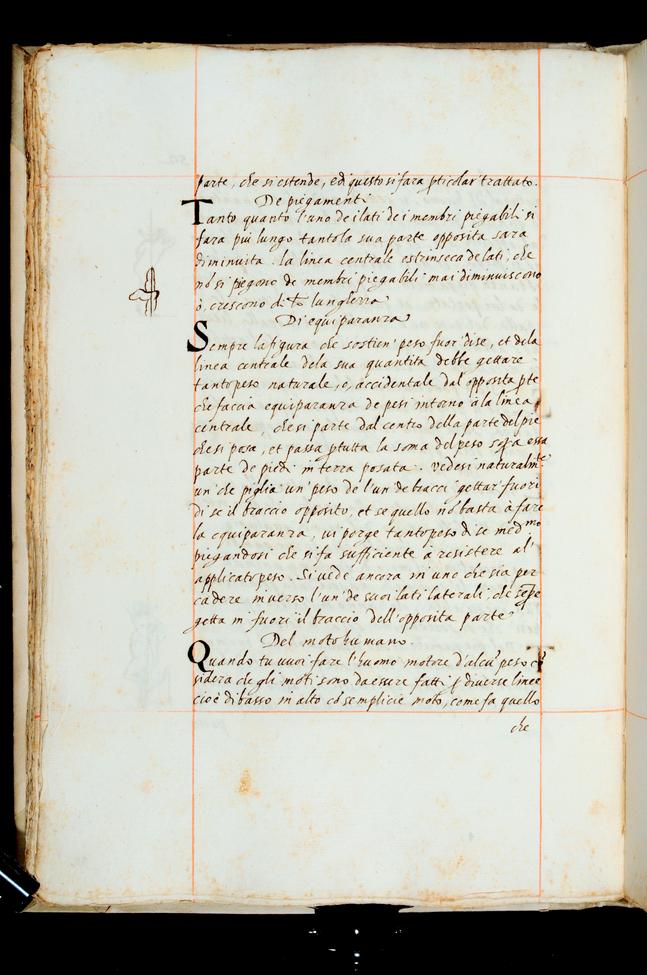 parte, che si estende, e di questo si fara pticolar trattato.
De piegamenti
Tanto quanto l'uno de i lati de i membri piegabili si
fara più lungo tanto la sua parte opposita sara
diminuita. la linea centrale estrinseca de lati, che
nō si piegono de membri piegabili mai diminuiscono
ò, crescono di
lunghezza
Di equiparanza
Sempre la figura che sostien' peso fuor di se, et dela
linea centrale dela sua quantita debbe gettare
tanto peso naturale, o, accidentale dal opposita pte
che faccia equiparanza de pesi intorno à la linea
centrale, che si parte dal centro della parte del pie
che si posa, et passa p tutta la soma del peso sopa essa
parte de piedi in terra posata. vedesi naturalmte
un' che piglia un' peso de l'un de bracci gettar fuori
di se il braccio opposito, et se quello nō basta à fare
la equiparanza, vi porge tanto peso di se medmo
piegandosi che si fa sufficiente à resistere al'
applicato peso. Si vede ancora in uno che sia per
cadere inverso l'un' de suoi lati laterali, che sempe
getta in fuori il braccio dell'opposita parte
Del moto humano.
Quando tu vuoi fare l'huomo motore d'alcu' peso cō
sidera che gli moti sono da essere fatti p diverse linee
cioè di basso in alto cō semplicie moto, come fa quello
che